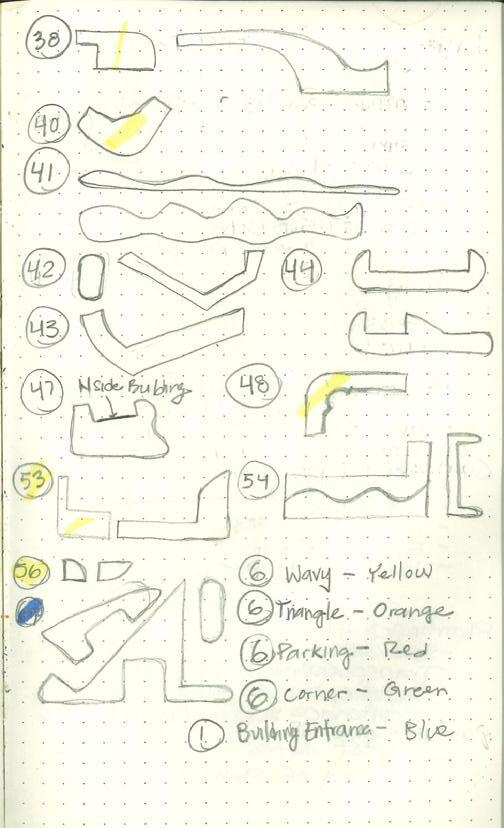 38
40
41
42 44
43
47 Nside Building 48
53 54
56
6 Wavy - Yellow
6 Triangle - Orange
6 Parking - Red
6 Corner - Green
1 Building Entrance - Blue